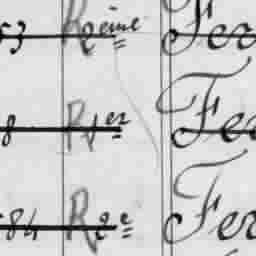 53 R 2eme Fer
8 R 1er Fe
84 R 2e Fer